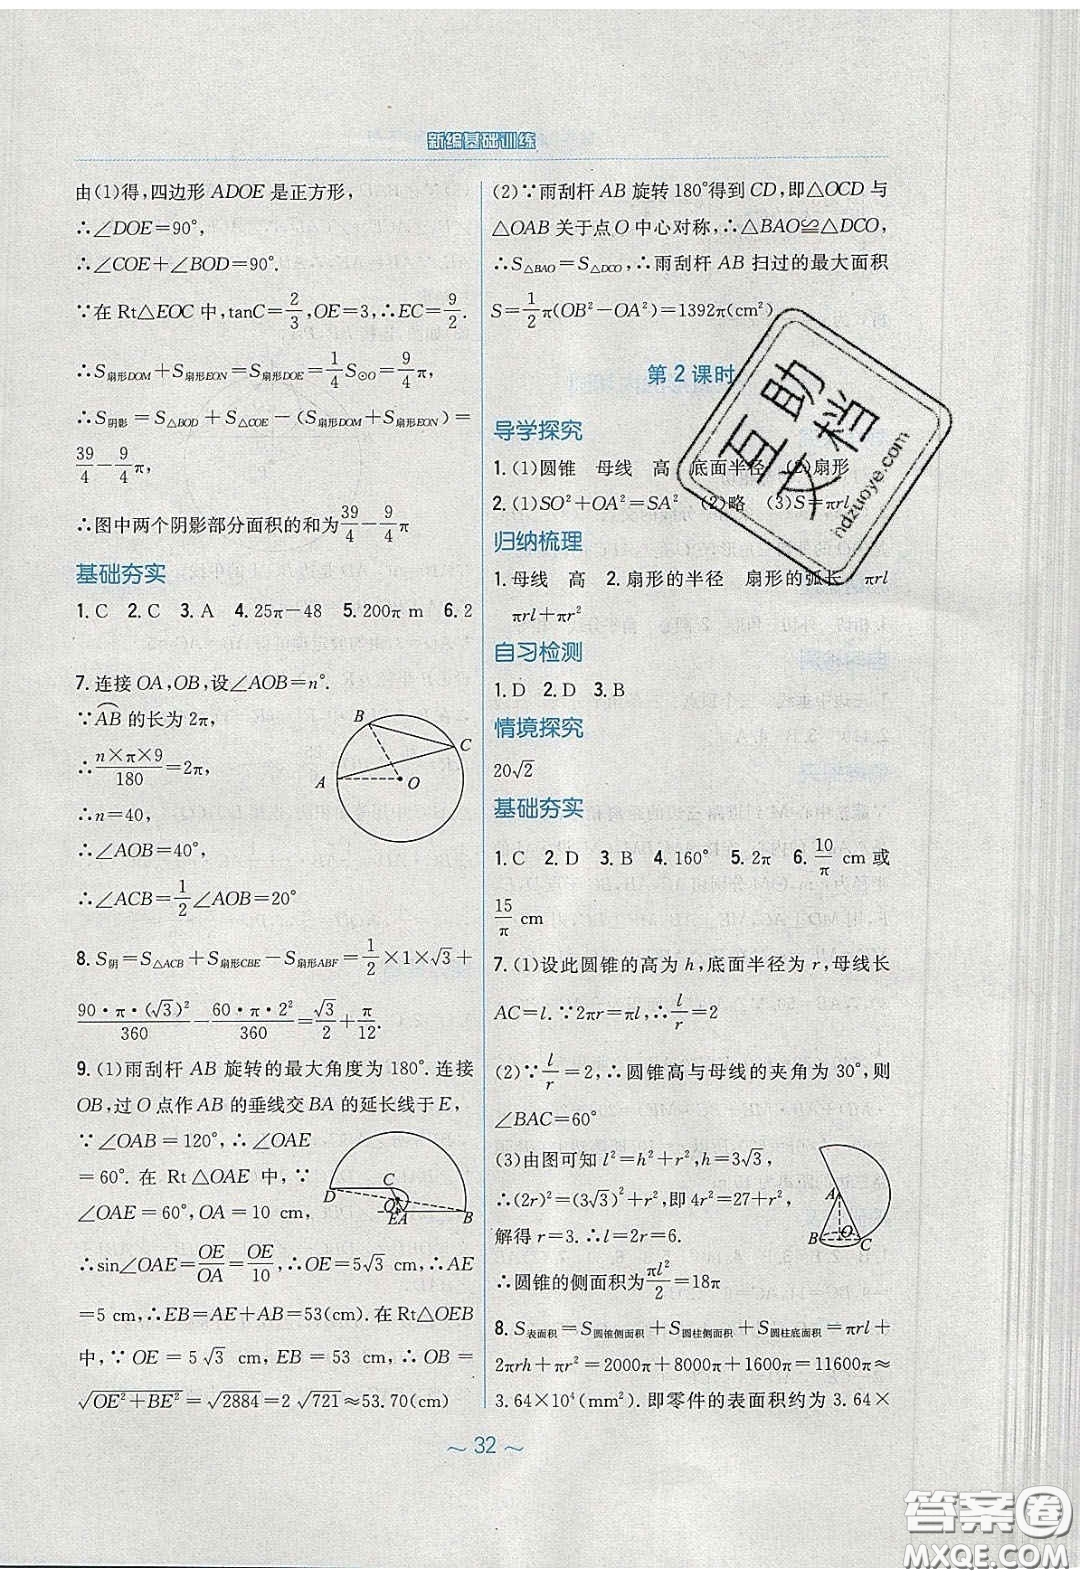 新编基础训练
由(1)得,四边形 ADOE 是正方形,
∴∠DOE=90°,
∴∠COE+∠BOD=90°.
∵在 Rt△EOC 中,tanC=2/3,OE=3,∴EC=9/2.
∴S扇形DOM+S扇形EON=S扇形DOE=1/4 S⊙O=9/4 π,
∴S阴影=S△BOD+S△COE-(S扇形DOM+S扇形EON)=
39/4-9/4 π,
∴图中两个阴影部分面积的和为39/4-9/4 π
基础夯实
1. C 2. C 3. A 4. 25π-48 5. 200π m 6. 2
7. 连接 OA,OB,设∠AOB=n°.
∵⌒AB 的长为 2π,
∴n×π×9/180=2π,
∴n=40,
∴∠AOB=40°,
∴∠ACB=1/2∠AOB=20°
B
C
A
O
8. S阴=S△ACB+S扇形CBE-S扇形ABF=1/2×1×√3+
90·π·(√3)²/360-60·π·2²/360=√3/2+π/12.
9. (1)雨刮杆 AB 旋转的最大角度为 180°. 连接
OB,过 O 点作 AB 的垂线交 BA 的延长线于 E,
∵∠OAB=120°,∴∠OAE
=60°. 在 Rt△OAE 中,∵
∠OAE=60°,OA=10 cm,
D
C
O
EA
B
∴sin∠OAE=OE/OA=OE/10,∴OE=5√3 cm,∴AE
=5 cm,∴EB=AE+AB=53(cm). 在 Rt△OEB
中,∵OE=5√3 cm,EB=53 cm,∴OB=
√(OE²+BE²)=√2884=2√721≈53.70(cm)
(2)∵雨刮杆 AB 旋转 180°得到 CD,即△OCD 与
△OAB 关于点 O 中心对称,∴△BAO≌△DCO,
∴S△BAO=S△DCO,∴雨刮杆 AB 扫过的最大面积
S=1/2π(OB²-OA²)=1392π(cm²)
第 2 课时
导学探究
1. (1)圆锥 母线 高 底面半径 (2)扇形
2. (1)SO²+OA²=SA² (2)略 (3)S=πrl
归纳梳理
1. 母线 高 2. 扇形的半径 扇形的弧长 πrl
πrl+πr²
自习检测
1. D 2. D 3. B
情境探究
20√2
基础夯实
1. C 2. D 3. B 4. 160° 5. 2π 6. 10/π cm 或
15/π cm
7. (1)设此圆锥的高为 h,底面半径为 r,母线长
AC=l. ∵2πr=πl,∴l/r=2
(2)∵l/r=2,∴圆锥高与母线的夹角为 30°,则
∠BAC=60°
(3)由图可知 l²=h²+r²,h=3√3,
∴(2r)²=(3√3)²+r²,即 4r²=27+r²,
解得 r=3. ∴l=2r=6.
∴圆锥的侧面积为πl²/2=18π
A
B
O
C
8. S表面积=S圆锥侧面积+S圆柱侧面积+S圆柱底面积=πrl+
2πrh+πr²=2000π+8000π+1600π=11600π≈
3.64×10⁴(mm²). 即零件的表面积约为 3.64×
～ 32 ～
互助文档
hdzuoye.com
答案圈
MXQE.COM